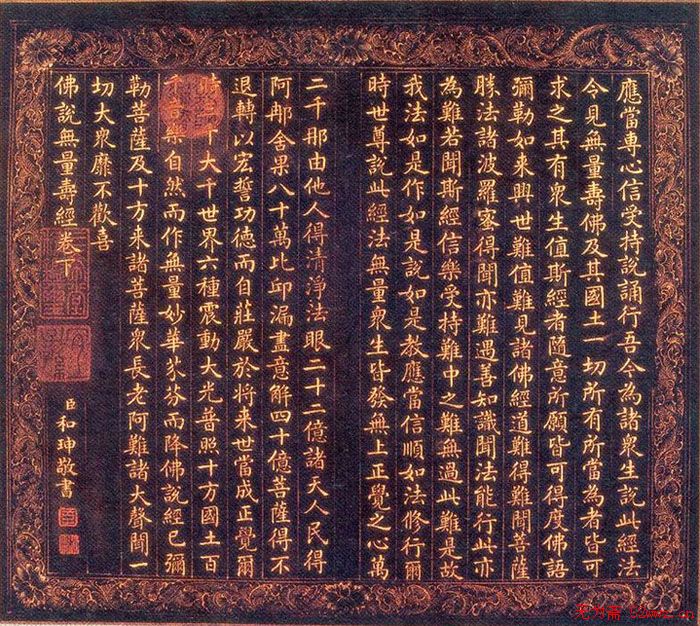 應當專心信受持說誦行吾今為諸衆生說此經法
今見無量壽佛及其國土一切所有所當為者皆可
求之其有衆生值斯經者隨意所願皆可得度佛語
彌勒如來興世難值難見諸佛經道難得難聞菩薩
勝法諸波羅蜜得聞亦難遇善知識聞法能行此亦
為難若聞斯經信樂受持難中之難無過此難是故
我法如是作如是說如是教應當信順如法修行爾
時世尊說此經法無量衆生皆發無上正覺之心萬
二千那由他人得清淨法眼二十二億諸天人民得
阿那舍果八十萬比邱漏盡意解四十億菩薩得不
退轉以宏誓功德而自莊嚴於將來世當成正覺爾
時大千世界六種震動大光普照十方國土百
音樂自然而作無量妙華芬而降佛說經已彌
勒菩薩及十方来諸菩薩衆長老阿難諸大聲聞一
切大衆靡不歡喜
佛說無量壽經卷下
臣和珅敬書